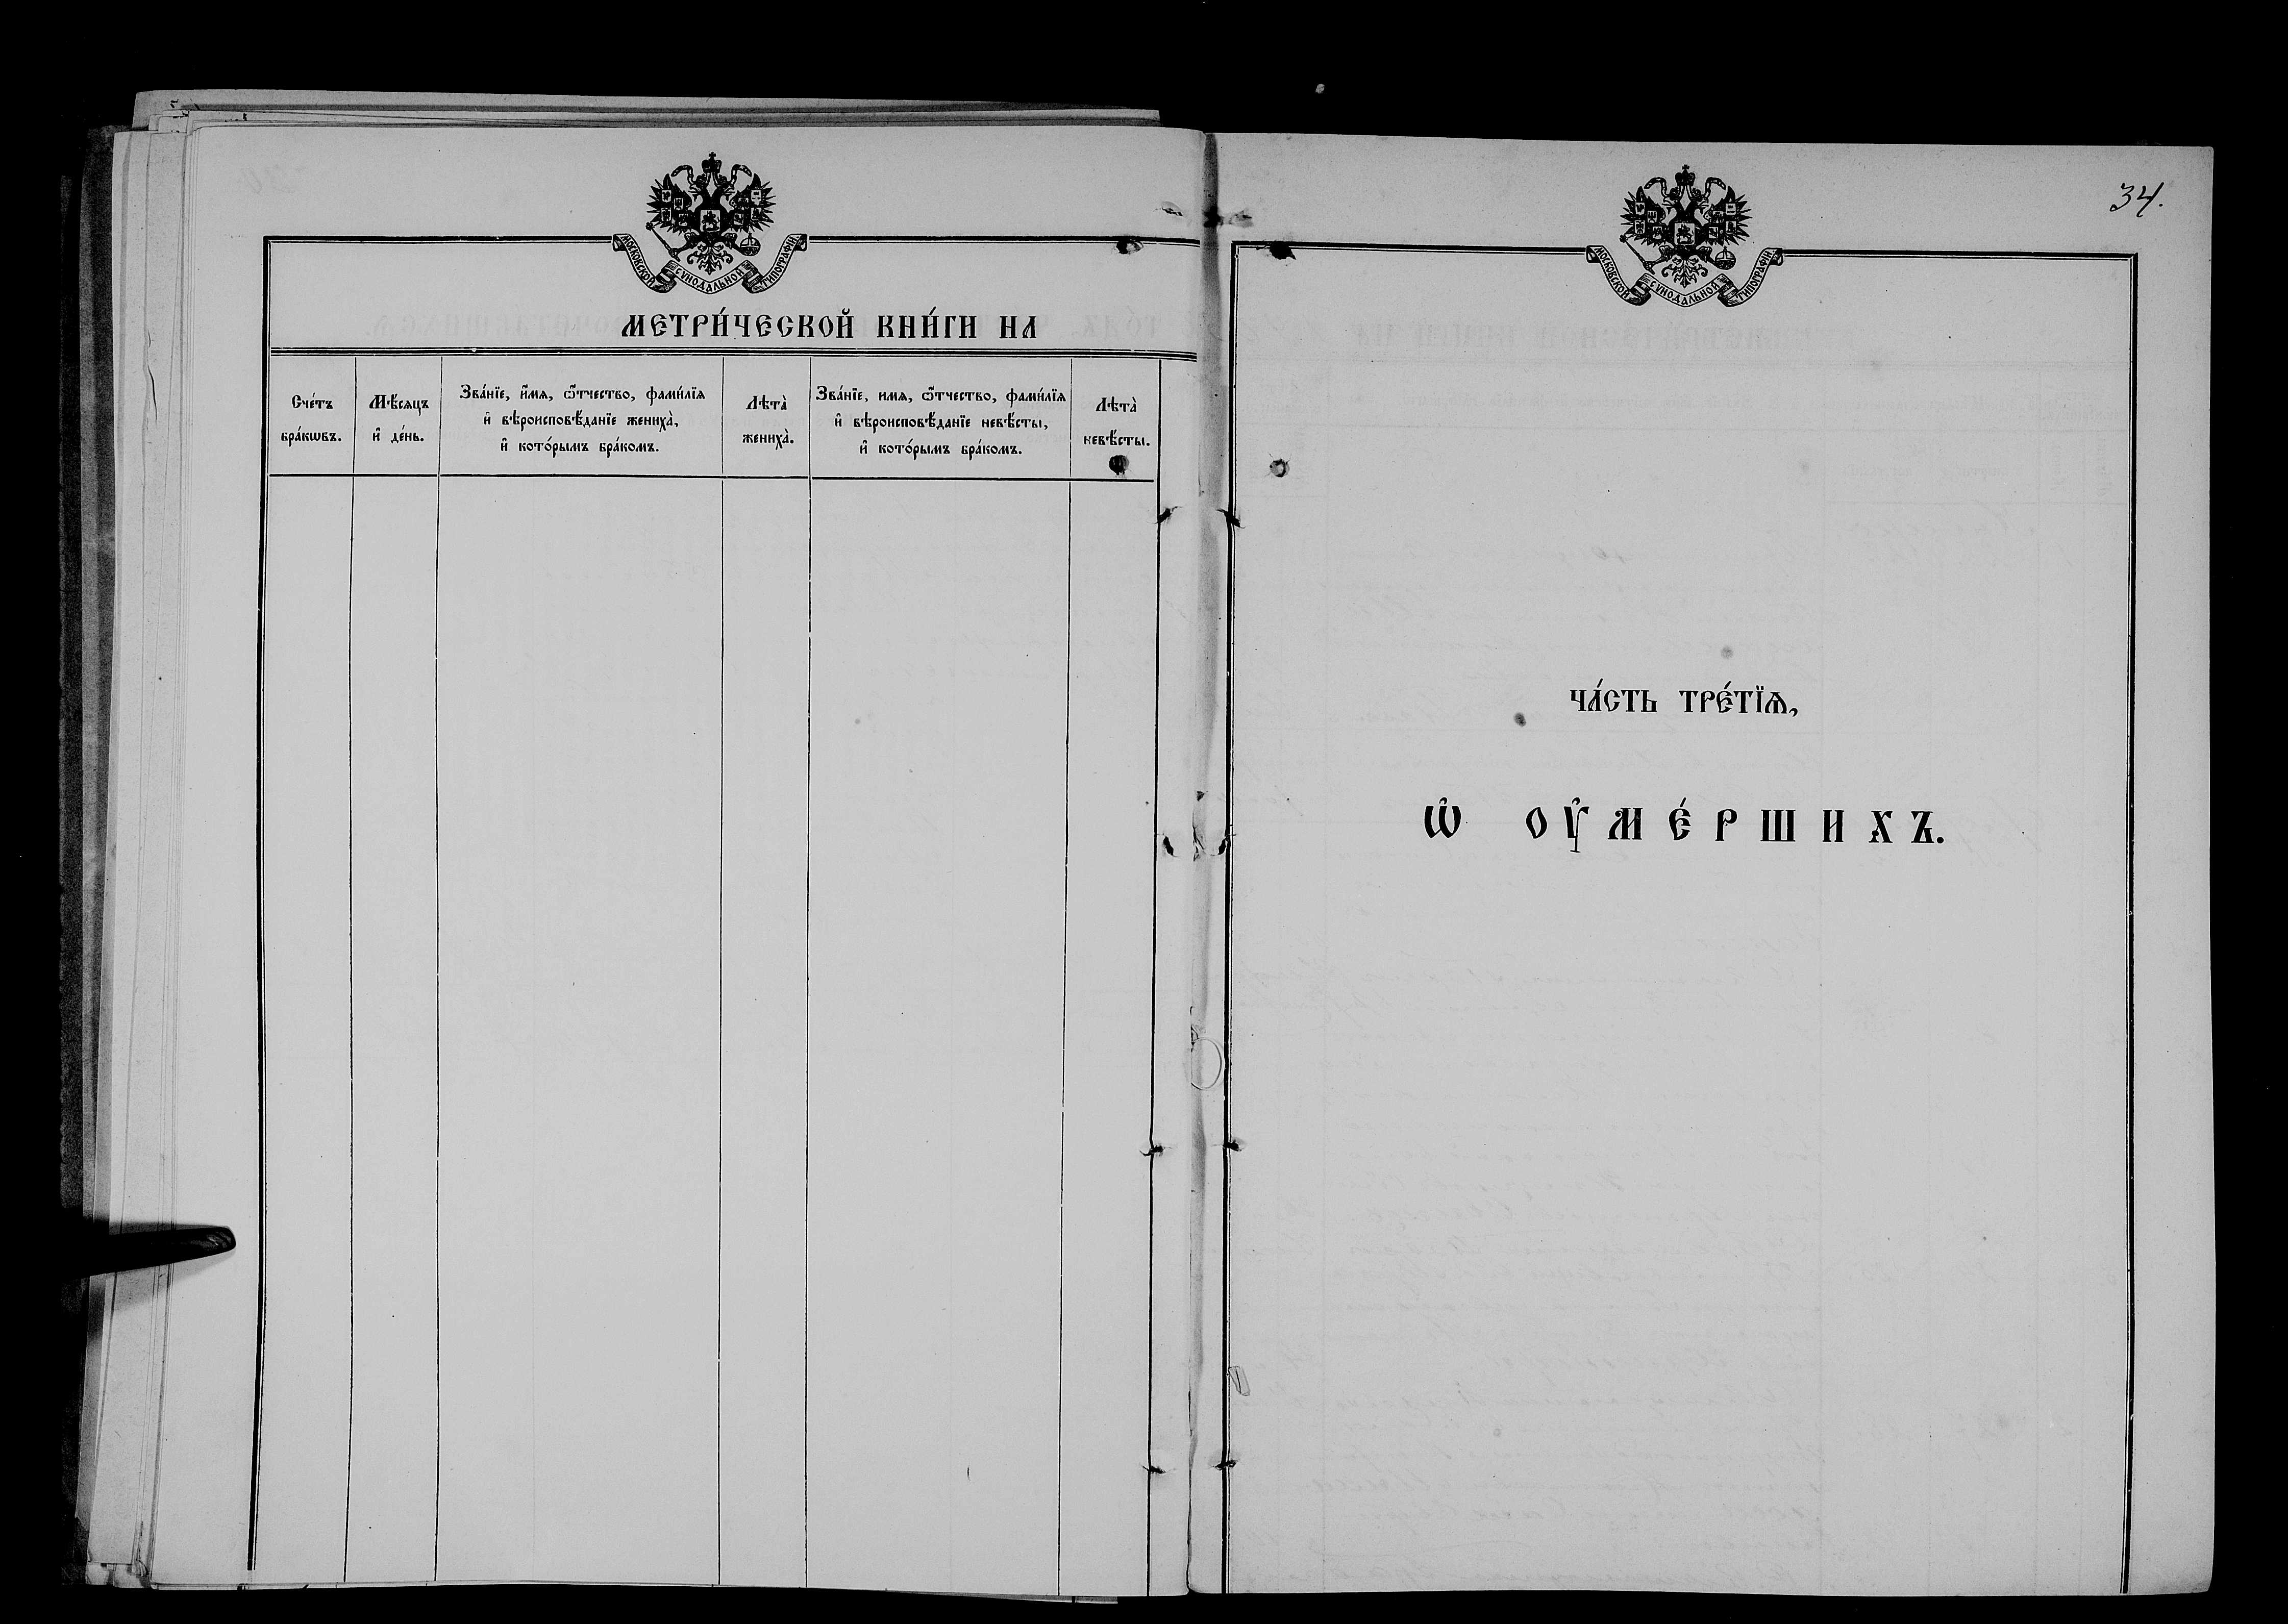 МОСКОВСКОЙ СѴНОДАЛЬНОЙ ТИПОГРАФІИ
МЕТРИ́ЧЕСКОЙ КНИ́ГИ НА
Сче́тъ
бра́кѡвъ.
Мѣ́сяцъ
и҆ де́нь.
Зва́нїе, и҆́мя, ѻ҆́тчество, фами́лїя
и҆ вѣроисповѣ́данїе жениха̀,
и҆ кото́рымъ бра́комъ.
Лѣта̀
жениха̀.
Зва́нїе, имя, ѻ҆́тчество, фами́лїя
и҆ вѣроисповѣ́данїе невѣ́сты,
и҆ кото́рымъ бра́комъ.
Лѣта̀
невѣ́сты.
34.
МОСКОВСКОЙ СѴНОДАЛЬНОЙ ТИПОГРАФІИ
ЧА́СТЬ ТРЕ́ТЇѦ,
Ѡ҆ ОУ҆МЕ́РШИХЪ.